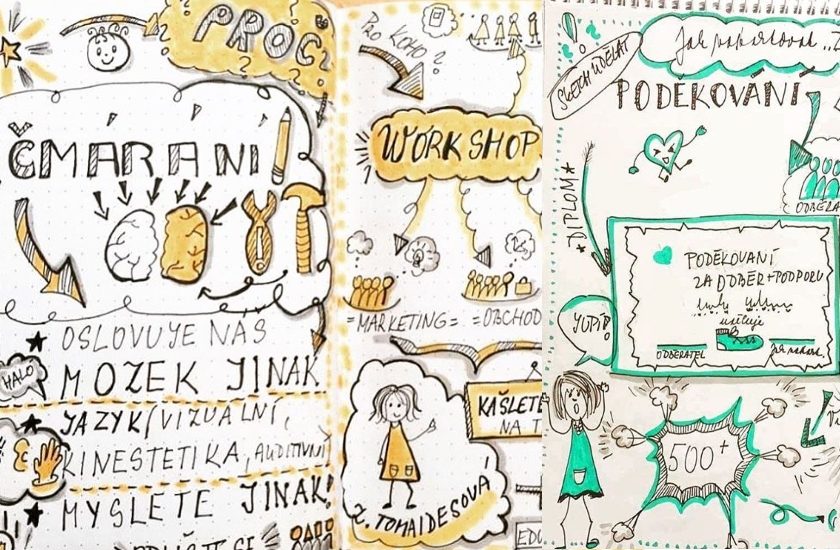 PROČ
ČMÁRÁNÍ
OSLOVUJE NÁS
HALO
MOZEK JINAK
JAZYK/VIZUÁLNÍ,
KINESTETIKA, AUDITIVNÍ
MYSLETE JINAK!
PRO KOHO?
WORKSHOP
=MARKETING=
=OBCHOD
KAŠLETE
NA T
Z. TOMAIDESOVÁ
EDU
SKETCH UDĚLAT
PODĚKOVÁNÍ
+DIPLOMA
PODĚKOVANÍ
ZA DŮBĚR+PODPORU
ODBĚRATEL
YUPÍ!
500+